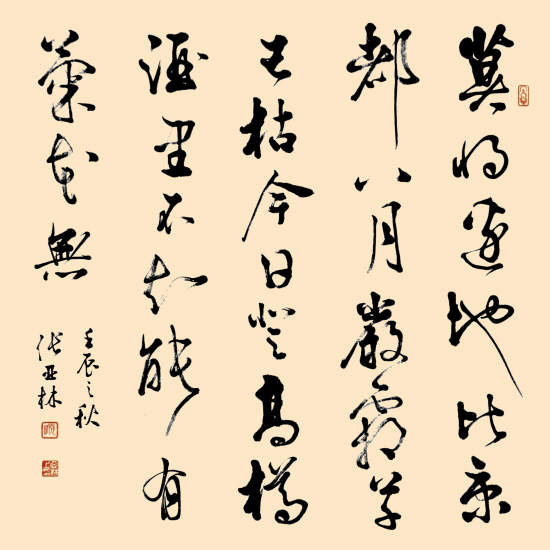 莫将邊地比京
都八月嚴霜草
已枯今日登高樽
酒里不知能有
菊花無
壬辰之秋
张亚林